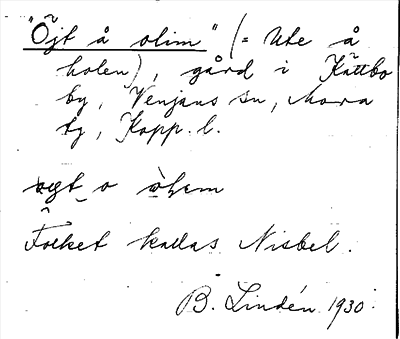 "Öjt å olim" (= Ute å
holen), gård i Kättbo
by, Venjans sn, Mora
tg, Kopp. l.
o
Folket kallas Nisbel.
B. Lindén 1930